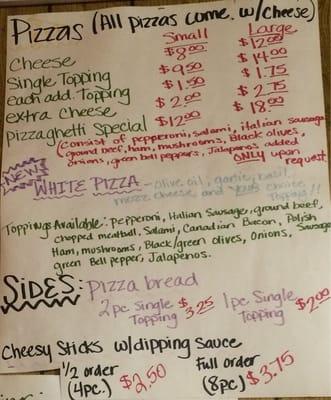 Pizzas (All pizzas come w/cheese)
Small Large
Cheese $8.00 $12.00
Single Topping $9.50 $14.00
each add. Topping $1.50 $1.75
extra Cheese $2.00 $2.75
Pizzaghetti Special $12.00 $18.00
(consist of pepperoni, Salami, italian sausage
ground beef, ham, mushrooms, Black olives,
onions, green bell peppers, Jalapenos added
ONLY upon
request
NEW
WHITE PIZZA - olive oil, garlic, basil,
mozz cheese and your choice
Topping!!
Toppings Available: Pepperoni, Italian Sausage, ground beef,
chopped meatball, Salami, Canadian Bacon, Polish
Sausage
Ham, mushrooms, Black/green olives, Onions,
green Bell pepper, Jalapenos.
SIDES: Pizza bread
2pc Single Topping $3.25 1pc Single Topping $2.00
Cheesy Sticks w/dipping Sauce
1/2 order Full order
(4pc.) $2.50 (8pc) $3.75